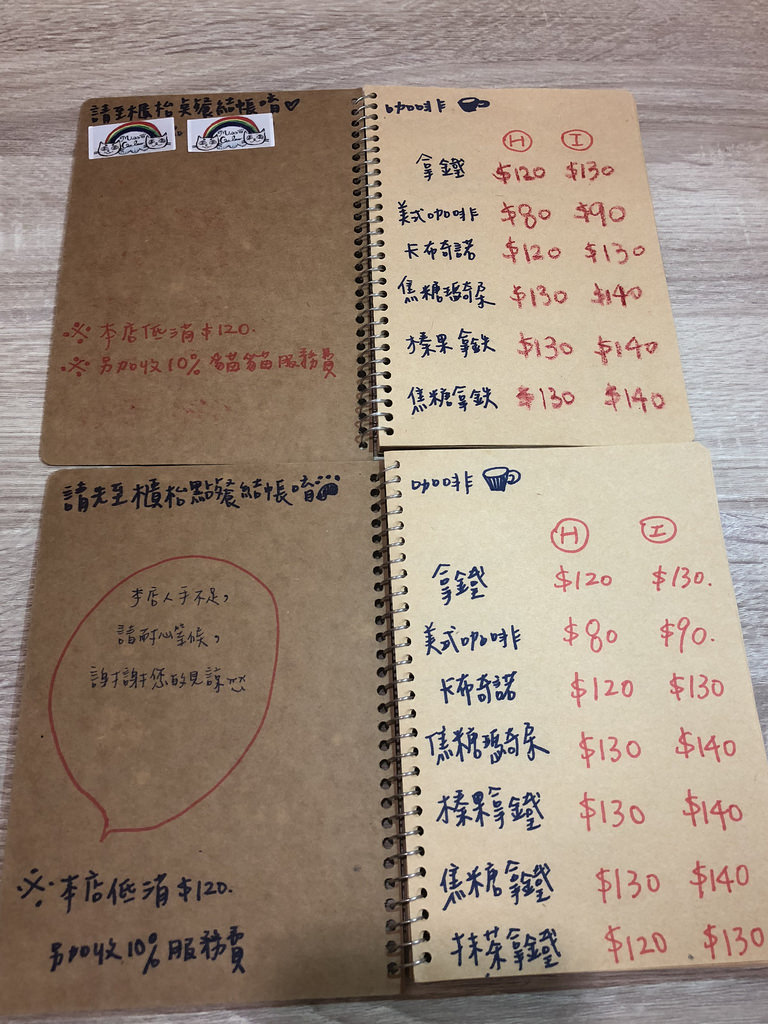 請至櫃枱點餐結帳唷♡
※ 本店低消$120.
※ 另加收10% 貓貓服務費
咖啡
H I
拿鐵 $120 $130
美式咖啡 $80 $90
卡布奇諾 $120 $130
焦糖瑪奇朵 $130 $140
榛果拿鉄 $130 $140
焦糖拿鉄 $130 $140
請先至櫃枱點餐結帳唷
本店人手不足,
請耐心等候,
謝謝您的見諒
※ 本店低消$120.
另加收10% 服務費
咖啡
H I
拿鐵 $120 $130.
美式咖啡 $80 $90.
卡布奇諾 $120 $130
焦糖瑪奇朵 $130 $140
榛果拿鐵 $130 $140
焦糖拿鐵 $130 $140
抹茶拿鐵 $120 $130